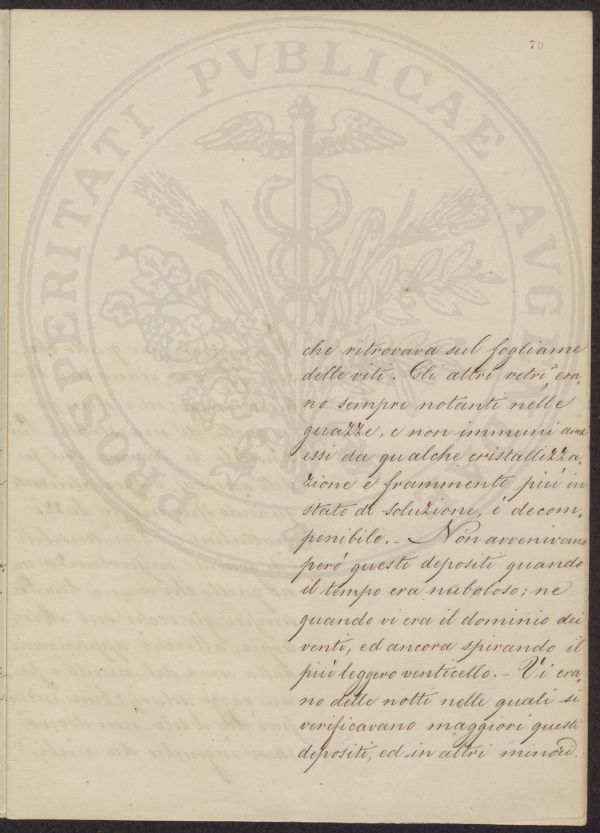 70
PROSPERITATI PVBLICAE AVGE
che ritrovava sul fogliame
delle viti. Gli altri vetri era=
no sempre notanti nelle
guazze, e non immuni anch
essi da qualche cristallizza=
zione e frammento più in
stato di soluzione, e decom=
ponibile. _ Non avvenivano
però questi depositi quando
il tempo era nuboloso; ne
quando vi era il dominio dei
venti, ed ancora spirando il
più leggero venticello. _ Vi era=
no delle notti nelle quali si
verificavano maggiori questi
depositi, ed in altri minori.